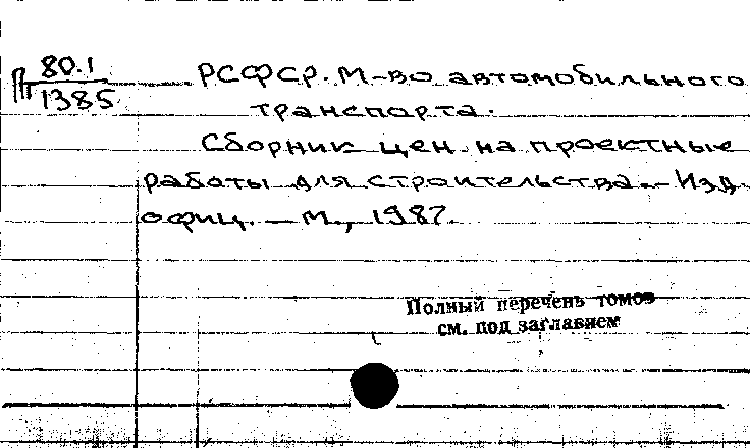 П 80.1
1385
РСФСР. М-во автомобильного
транспорта.
Сборник цен на проектные
работы для строительства. – Изд.
офиц. – М., 1987.
Полный перечень томов
см. под заглавием